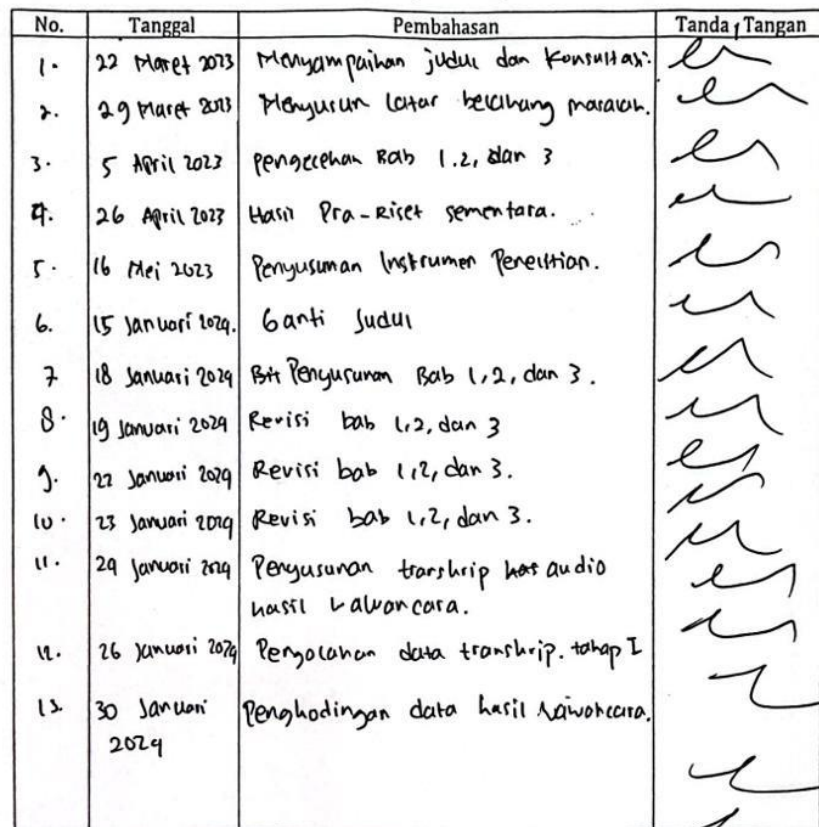 No. Tanggal Pembahasan Tanda Tangan
1. 22 Maret 2023 Menyampaikan judul dan Konsultasi.
2. 29 Maret 2023 Menyusun latar belakang masalah.
3. 5 April 2023 Pengecekan Bab 1.2, dan 3
4. 26 April 2023 Hasil Pra-Riset sementara.
5. 16 Mei 2023 Penyusunan Instrumen Penelitian.
6. 15 Januari 2024. Ganti Judul
7 18 Januari 2024 Penyusunan Bab 1,2, dan 3.
8. 19 Januari 2024 Revisi bab 1,2, dan 3
9. 22 Januari 2024 Revisi bab 1,2, dan 3.
10. 23 Januari 2024 Revisi bab 1,2, dan 3.
11. 24 Januari 2024 Penyusunan transkrip audio
hasil wawancara.
12. 26 Januari 2024 Pengolahan data transkrip. tahap I
13. 30 Januari Pengkodingan data hasil wawancara.
2024